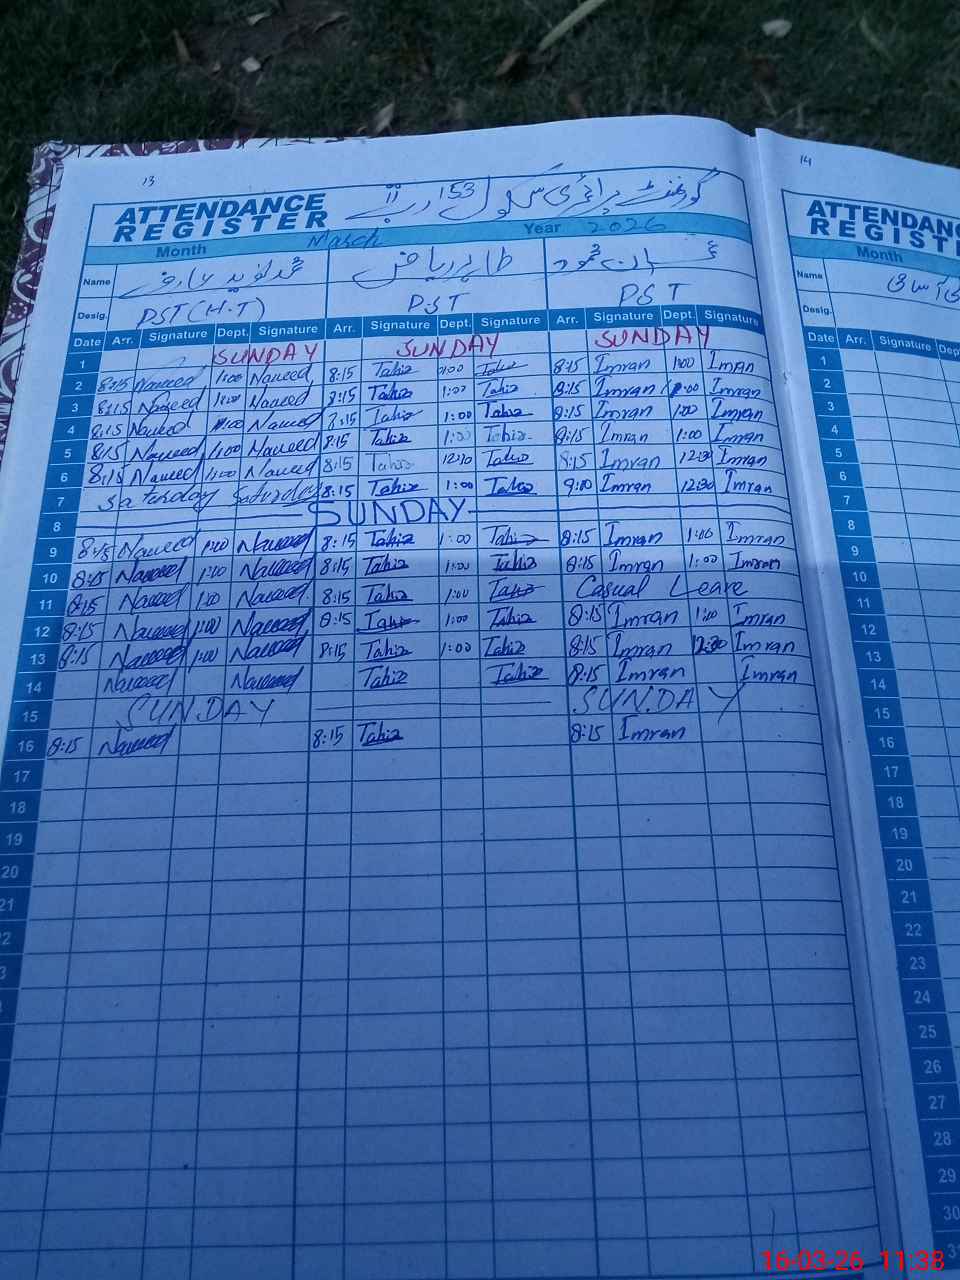 13
14
ATTENDANCE REGISTER گورنمنٹ پرائمری سکول 153 رب
Month March Year 2026
Name محمد نوید عارف طاہر ریاض عمران محمود
Desig. PST (H.T) PST PST
Date Arr. Signature Dept. Signature Arr. Signature Dept. Signature Arr. Signature Dept. Signature
1 SUNDAY SUNDAY SUNDAY
2 8:15 Naveed 1:00 Naveed 8:15 Tahir 1:00 Tahir 8:15 Imran 1:00 Imran
3 8:15 Naveed 1:00 Naveed 8:15 Tahir 1:00 Tahir 8:15 Imran 1:00 Imran
4 8:15 Naveed 1:00 Naveed 8:15 Tahir 1:00 Tahir 8:15 Imran 1:00 Imran
5 8:15 Naveed 1:00 Naveed 8:15 Tahir 1:00 Tahir 8:15 Imran 1:00 Imran
6 8:15 Naveed 1:00 Naveed 8:15 Tahir 12:30 Tahir 8:15 Imran 12:30 Imran
7 Saturday Saturday 8:15 Tahir 1:00 Tahir 9:00 Imran 12:30 Imran
8 SUNDAY
9 8:15 Naveed 1:00 Naveed 8:15 Tahir 1:00 Tahir 8:15 Imran 1:00 Imran
10 8:15 Naveed 1:00 Naveed 8:15 Tahir 1:00 Tahir 8:15 Imran 1:00 Imran
11 8:15 Naveed 1:00 Naveed 8:15 Tahir 1:00 Tahir Casual Leave
12 8:15 Naveed 1:00 Naveed 8:15 Tahir 1:00 Tahir 8:15 Imran 1:00 Imran
13 8:15 Naveed 1:00 Naveed 8:15 Tahir 1:00 Tahir 8:15 Imran 12:30 Imran
14 Naveed Naveed Tahir Tahir 8:15 Imran Imran
15 SUNDAY SUNDAY
16 8:15 Naveed 8:15 Tahir 8:15 Imran
17
18
19
20
21
ATTENDANCE REGISTER
Month
Name
Desig.
Date Arr. Signature
1
2
3
4
5
6
7
8
9
10
11
12
13
14
15
16
17
18
19
20
21
22
23
24
25
26
27
28
29
30
16-03-26 11:38